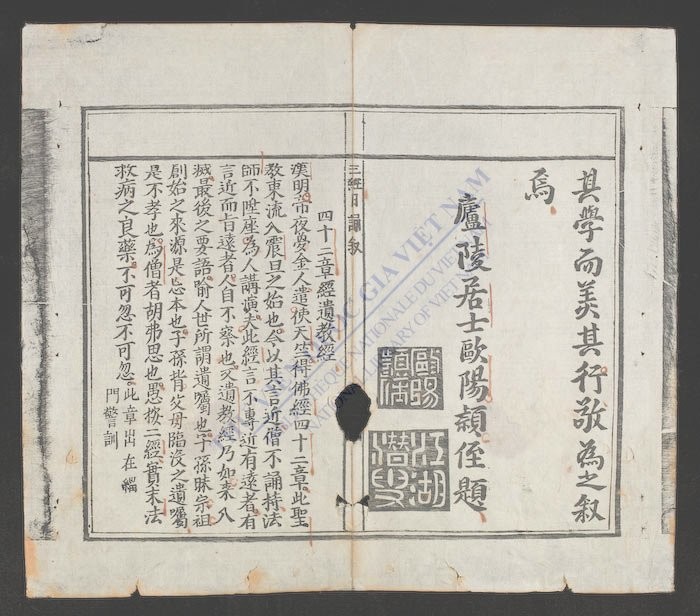 其學而美其行敬為之叙
焉
廬陵居士歐陽穎侄題
歐陽
江湖潛叟
三經日誦叙
四十二章經遺教經
漢明帝夜夢金人遣使天竺得佛經四十二章此聖
教東流入震旦之始也今以其言近僧不誦持法
師不陞座為人講演夫此經言不專近有遠者有
言近而旨遠者人自不察也又遺教經乃如來入
滅最後之要語喻人世所謂遺囑也子孫昧宗祖
創始之來源是忘本也子孫背父母臨没之遺囑
是不孝也為僧者胡弗思也愚按二經實末法
救病之良藥不可忽不可忽此章出在緇
門警訓
QUỐC GIA VIỆT NAM
BIBLIOTHÈQUE NATIONALE DU VIETNAM
NATIONAL LIBRARY OF VIETNAM